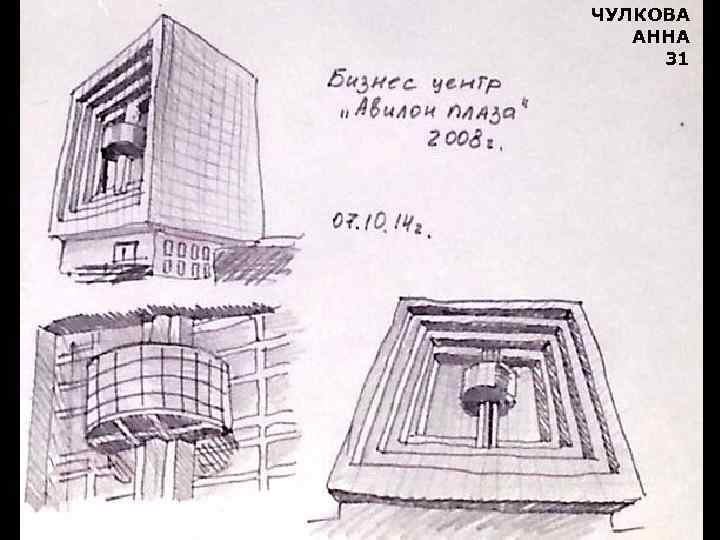 ЧУЛКОВА
АННА
31
Бизнес центр
„Авилон плаза"
2008г.
07.10.14г.